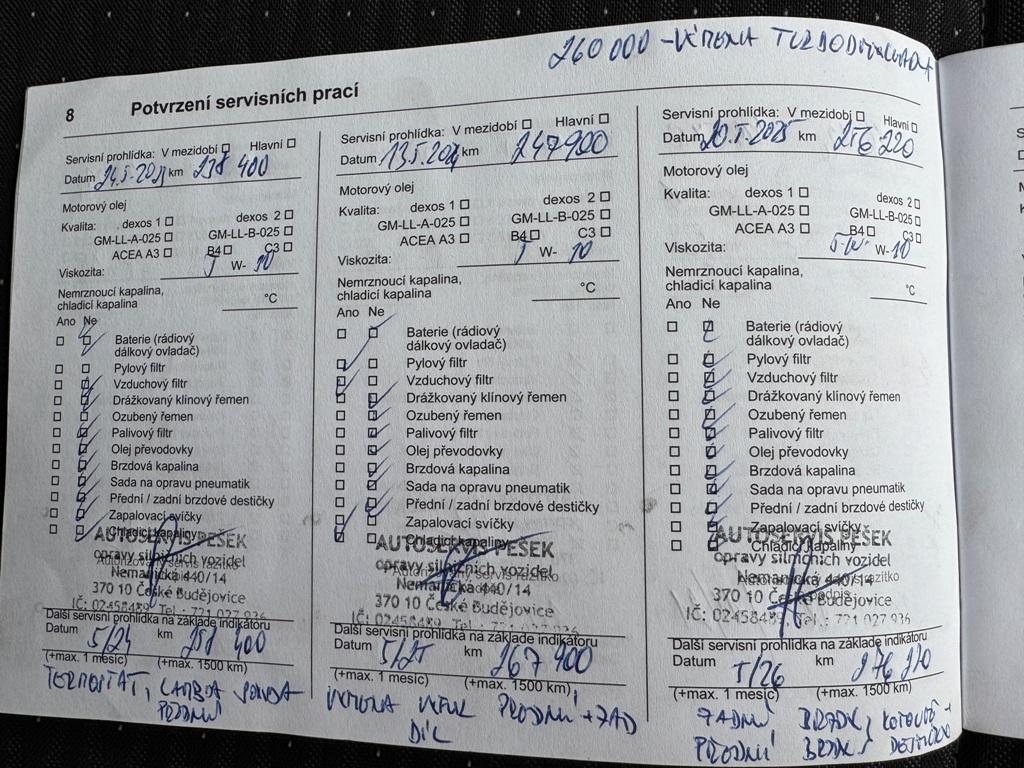 260 000 - VÝMĚNA TURBODMYCHADLA
8 Potvrzení servisních prací
Servisní prohlídka: V mezidobí ☐ Hlavní ☐
Datum 24.5. km 238 400
Motorový olej
Kvalita: dexos 1 ☐ dexos 2 ☐
GM-LL-A-025 ☐ GM-LL-B-025 ☐
ACEA A3 ☐ B4 ☐ C3 ☐
Viskozita: 5 W- 30
Nemrznoucí kapalina,
chladicí kapalina °C
Ano Ne
Baterie (rádiový
dálkový ovladač)
Pylový filtr
Vzduchový filtr
Drážkovaný klínový řemen
Ozubený řemen
Palivový filtr
Olej převodovky
Brzdová kapalina
Sada na opravu pneumatik
Přední / zadní brzdové destičky
Zapalovací svíčky
Chladicí kapaliny
AUTOSERVIS PEŠEK
opravy silničních vozidel
Nemanická 440/14
370 10 České Budějovice
IČ: 02458489 Tel.: 721 027 936
Další servisní prohlídka na základě indikátoru
Datum 5/24 km 258 400
(+max. 1 měsíc) (+max. 1500 km)
TERMOSTAT, LAMBDA SONDA
PŘEDNÍ
Servisní prohlídka: V mezidobí ☐ Hlavní ☐
Datum 13.5.2024 km 247900
Motorový olej
Kvalita: dexos 1 ☐ dexos 2 ☐
GM-LL-A-025 ☐ GM-LL-B-025 ☐
ACEA A3 ☐ B4 ☐ C3 ☐
Viskozita: 5 W- 30
Nemrznoucí kapalina,
chladicí kapalina °C
Ano Ne
Baterie (rádiový
dálkový ovladač)
Pylový filtr
Vzduchový filtr
Drážkovaný klínový řemen
Ozubený řemen
Palivový filtr
Olej převodovky
Brzdová kapalina
Sada na opravu pneumatik
Přední / zadní brzdové destičky
Zapalovací svíčky
Chladicí kapaliny
AUTOSERVIS PEŠEK
opravy silničních vozidel
Nemanická 440/14
370 10 České Budějovice
IČ: 02458489 Tel.: 721 027 936
Další servisní prohlídka na základě indikátoru
Datum 5/25 km 267 400
(+max. 1 měsíc) (+max. 1500 km)
VÝMĚNA VÝFUK PŘEDNÍ + ZAD
DÍL
Servisní prohlídka: V mezidobí ☐ Hlavní ☐
Datum 20.5.2025 km 256 220
Motorový olej
Kvalita: dexos 1 ☐ dexos 2 ☐
GM-LL-A-025 ☐ GM-LL-B-025 ☐
ACEA A3 ☐ B4 ☐ C3 ☐
Viskozita: 5-W- W- 30
Nemrznoucí kapalina,
chladicí kapalina °C
Ano Ne
Baterie (rádiový
dálkový ovladač)
Pylový filtr
Vzduchový filtr
Drážkovaný klínový řemen
Ozubený řemen
Palivový filtr
Olej převodovky
Brzdová kapalina
Sada na opravu pneumatik
Přední / zadní brzdové destičky
Zapalovací svíčky
Chladicí kapaliny
AUTOSERVIS PEŠEK
opravy silničních vozidel
Nemanická 440/14
370 10 České Budějovice
IČ: 02458489 Tel.: 721 027 936
Další servisní prohlídka na základě indikátoru
Datum 5/26 km 276 220
(+max. 1 měsíc) (+max. 1500 km)
ZADNÍ BRZDY, KOTOUČE +
PŘEDNÍ BRZDY DESTIČKY